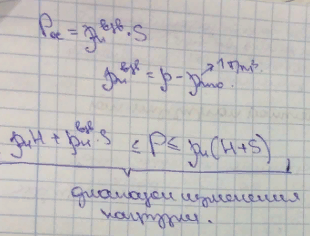 Pос = γн^взв · S
γн^взв = γ - γвто → 1 т/м³.
γнH + γн^взв · S ≤ P ≤ γн(H+S)
диапазон изменения
нагрузки.